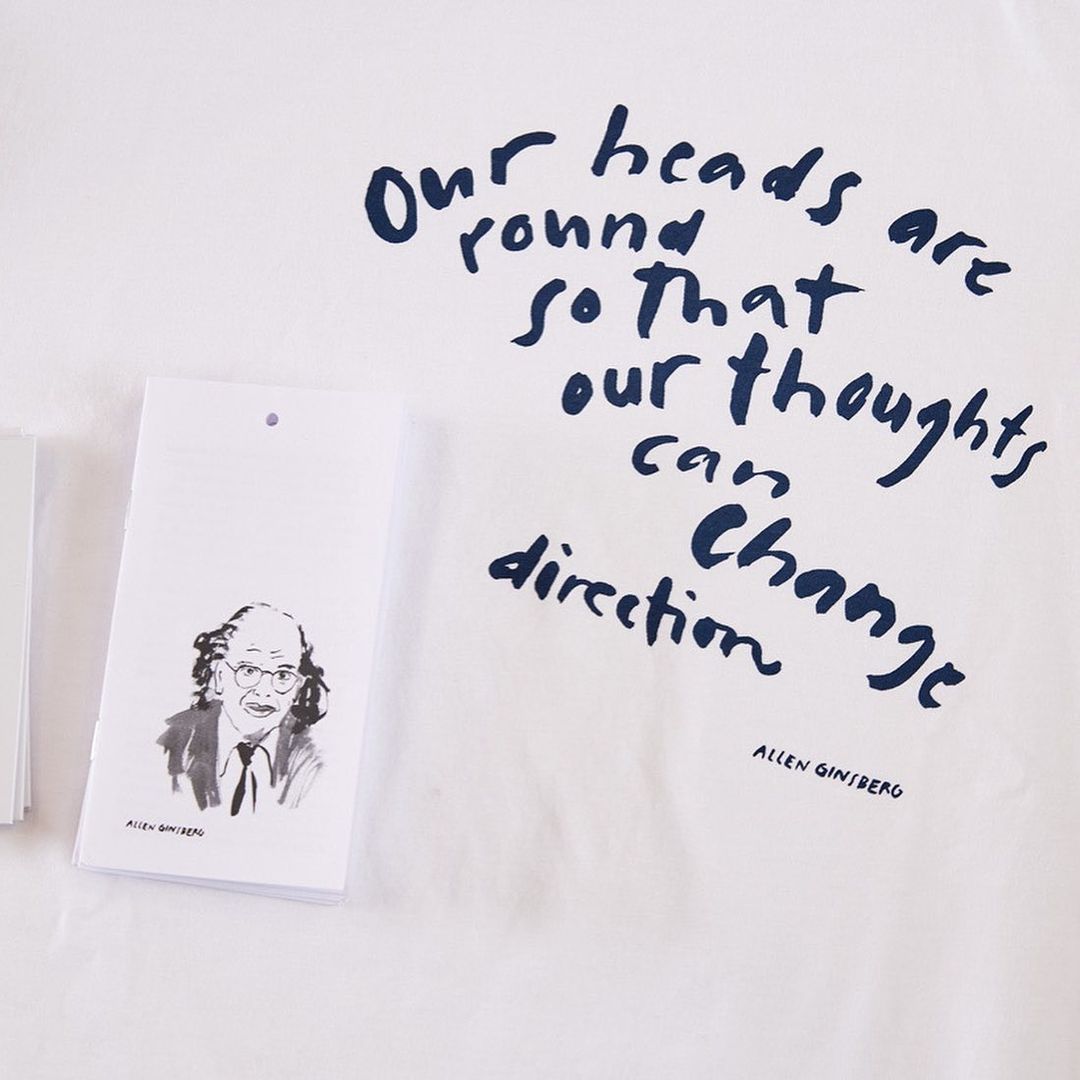 Our heads are
round
so that
our thoughts
can
Change
direction
ALLEN GINSBERG
ALLEN GINSBERG